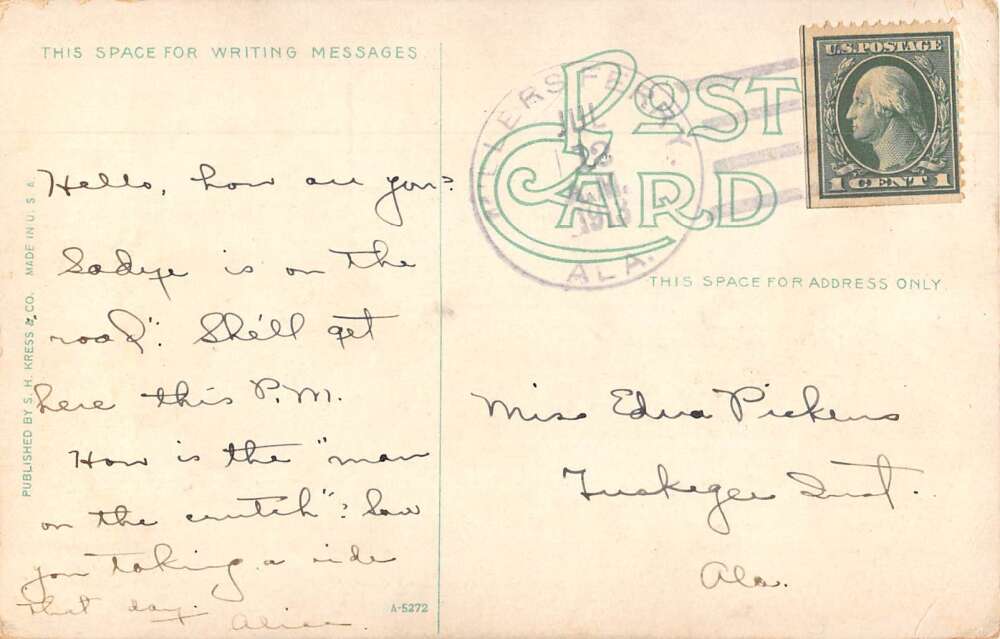 THIS SPACE FOR WRITING MESSAGES
Hello, how are you?
Sadye is on the
road". She'll get
here this P.M.
How is the "man
on the crutch"? Saw
you taking a ride
that day.
Alice.
PUBLISHED BY S. H. KRESS & CO. MADE IN U. S. A.
A-5272
POST
CARD
MILLERS FERRY.
JUL
22
ALA.
U.S. POSTAGE
1 CENT 1
THIS SPACE FOR ADDRESS ONLY.
Miss Edna Pickens
Tuskegee Inst.
Ala.